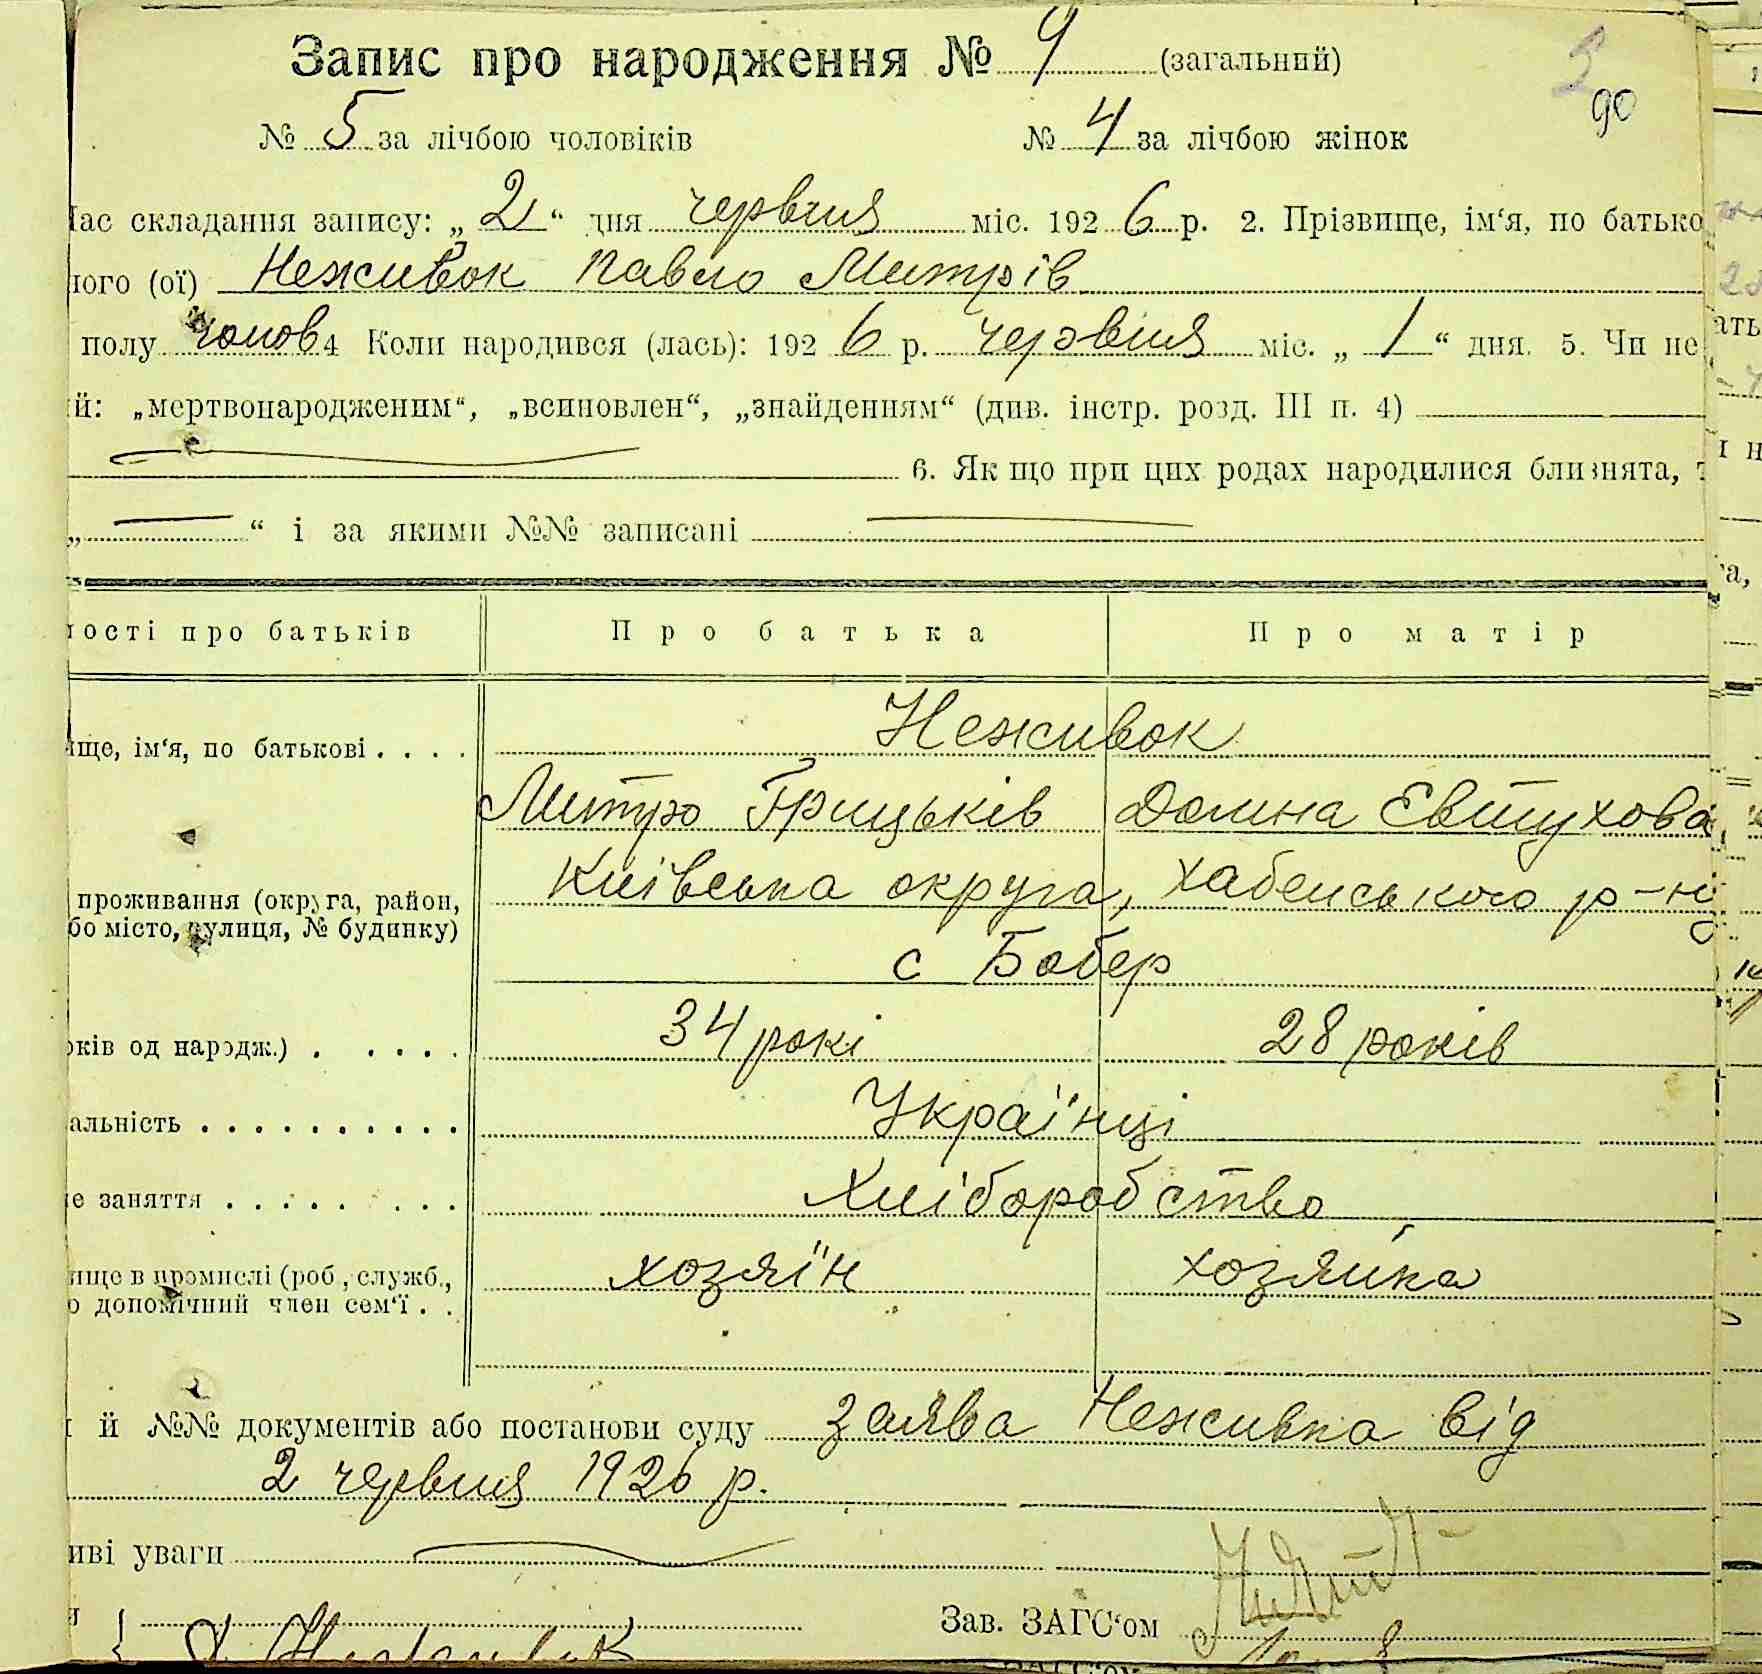 Запис про народження № 9 (загальний)
90
№ 5 за лічбою чоловіків № 4 за лічбою жінок
Час складання запису: „2“ дня червня міс. 1926 р. 2. Прізвище, ім‘я, по батько
ного (ої) Неживок Павло Митрів
полу чолов 4 Коли народився (лась): 1926 р. червня міс. „1“ дня. 5. Чи не
ий: „мертвонародженим“, „всиновлен“, „знайденням“ (див. інстр. розд. III п. 4)
6. Як що при цих родах народилися близнята, т
„ “ і за якими №№ записані
ності про батьків Про батька Про матір
Неживок
ище, ім‘я, по батькові
Митро Грицьків Домна Евтухова
Київська округа, Хабенського р-ну
проживання (округа, район,
бо місто, вулиця, № будинку)
с Бобер
оків од народж.) 34 рокі 28 років
альність Українці
не заняття Хліборобство
ище в промислі (роб., служб., хозяїн хозяйка
о допомічний член сем‘ї
й №№ документів або постанови суду заява Неживка від
2 червня 1926 р.
иві уваги
Зав. ЗАГС‘ом